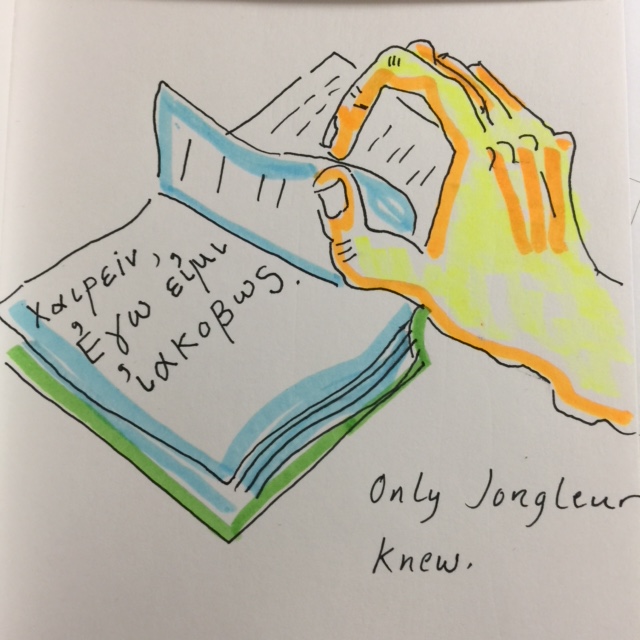 χαιρείν,
Ἐγω εἰμι
ἰακοβως.
Only Jongleur
knew.